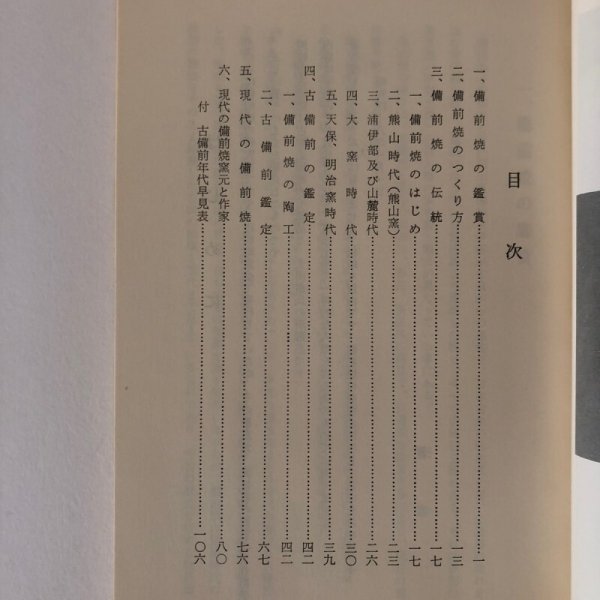 目次
一、備前焼の鑑賞……一
二、備前焼のつくり方……一三
三、備前焼の伝統……一七
一、備前焼のはじめ……一七
二、熊山時代（熊山窯）……二三
三、浦伊部及び山麓時代……二六
四、大窯時代……三〇
五、天保、明治窯時代……三九
四、古備前の鑑定……四二
一、備前焼の陶工……四二
二、古備前鑑定……六七
五、現代の備前焼……七六
六、現代の備前焼窯元と作家……八〇
付 古備前年代早見表……一〇六